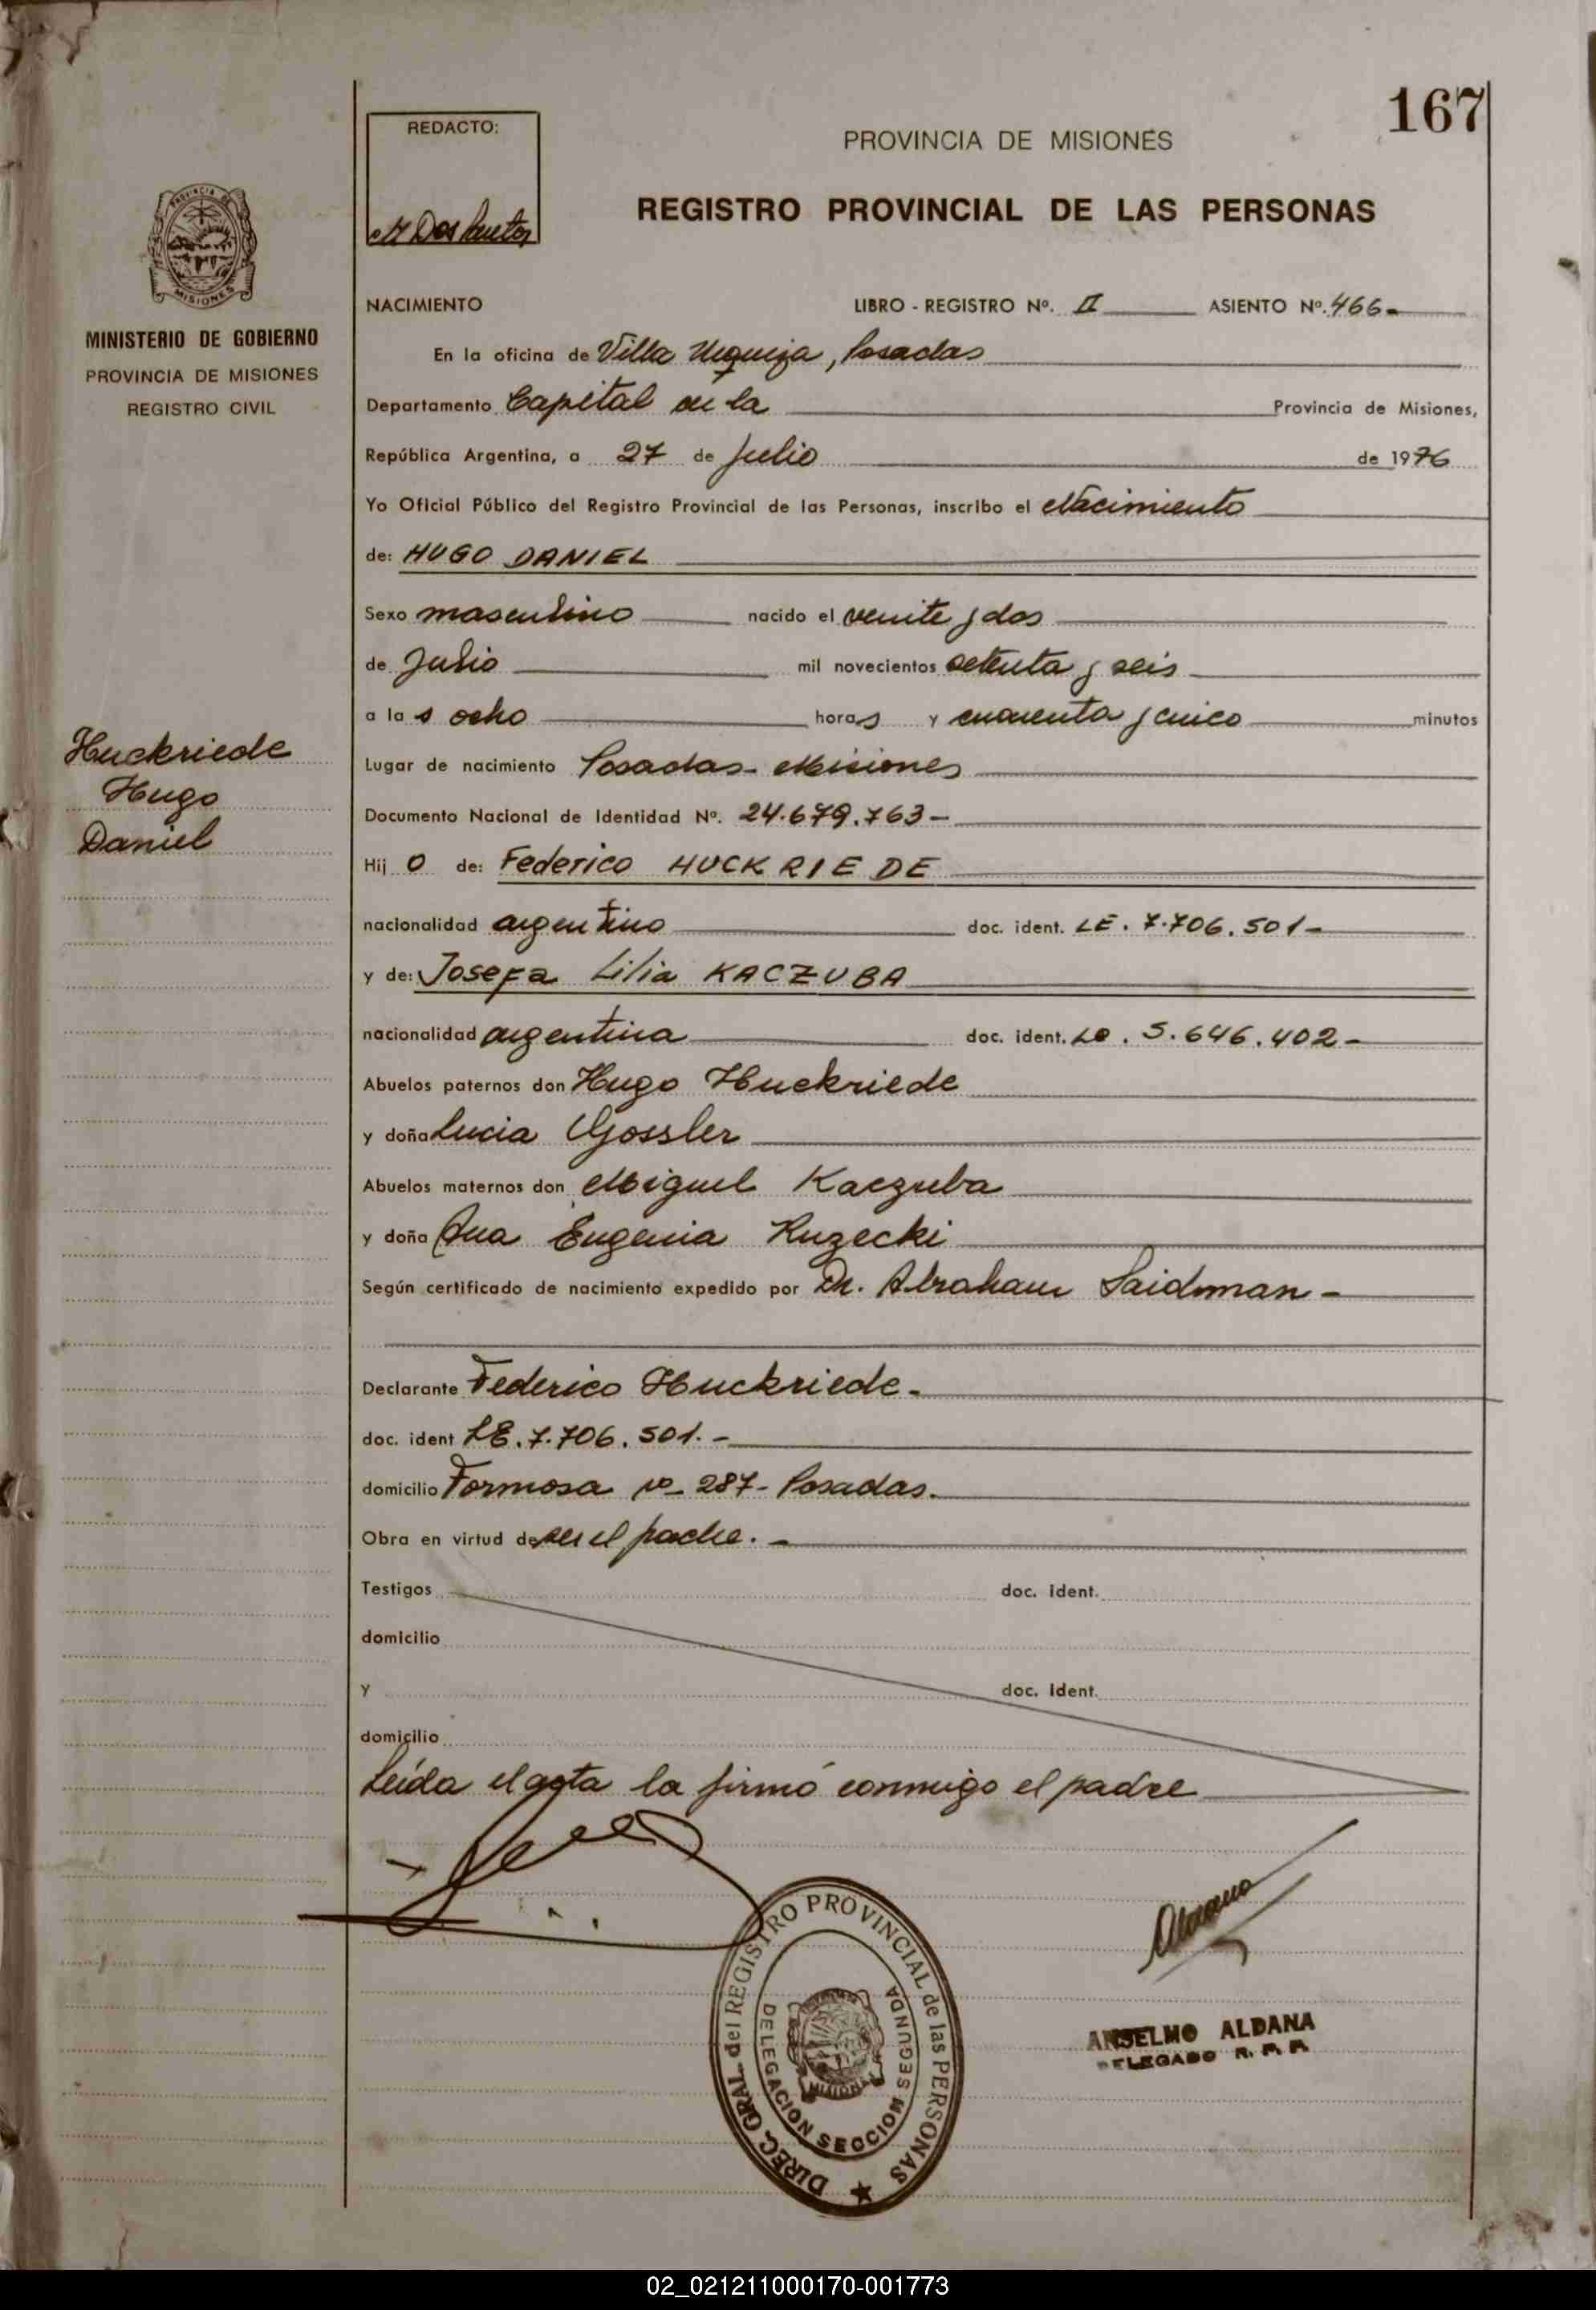 167
REDACTO:
PROVINCIA DE MISIONES
REGISTRO PROVINCIAL DE LAS PERSONAS
MINISTERIO DE GOBIERNO
PROVINCIA DE MISIONES
REGISTRO CIVIL
NACIMIENTO LIBRO - REGISTRO Nº. II ASIENTO Nº. 466-
En la oficina de Villa Urquiza, Posadas
Departamento Capital de la Provincia de Misiones,
República Argentina, a 27 de Julio de 1976
Yo Oficial Público del Registro Provincial de las Personas, inscribo el Nacimiento
de: HUGO DANIEL
Sexo masculino nacido el veinte y dos
de Julio mil novecientos setenta y seis
a las ocho horas y cuarenta y cinco minutos
Huckriede
Hugo
Daniel
Lugar de nacimiento Posadas- Misiones
Documento Nacional de Identidad Nº. 24.679.763-
Hij o de: Federico HUCKRIEDE
nacionalidad argentino doc. ident. LE. 7.706.501-
y de: Josefa Lilia KACZUBA
nacionalidad argentina doc. ident. LC. 5.646.402-
Abuelos paternos don Hugo Huckriede
y doña Lucia Gossler
Abuelos maternos don Miguel Kaczuba
y doña Ana Eugenia Kuzecki
Según certificado de nacimiento expedido por Dr. Abraham Saidman-
Declarante Federico Huckriede-
doc. ident LE. 7.706.501.-
domicilio Formosa nº 287- Posadas.
Obra en virtud de ser el padre.-
Testigos doc. ident.
domicilio
y doc. ident.
domicilio
Leída el acta la firmó conmigo el padre
DIREC. GRAL. del REGISTRO PROVINCIAL de las PERSONAS
DELEGACION SECCION SEGUNDA
MISIONES
Aldana
ANSELMO ALDANA
DELEGADO R. P. P.
02_021211000170-001773